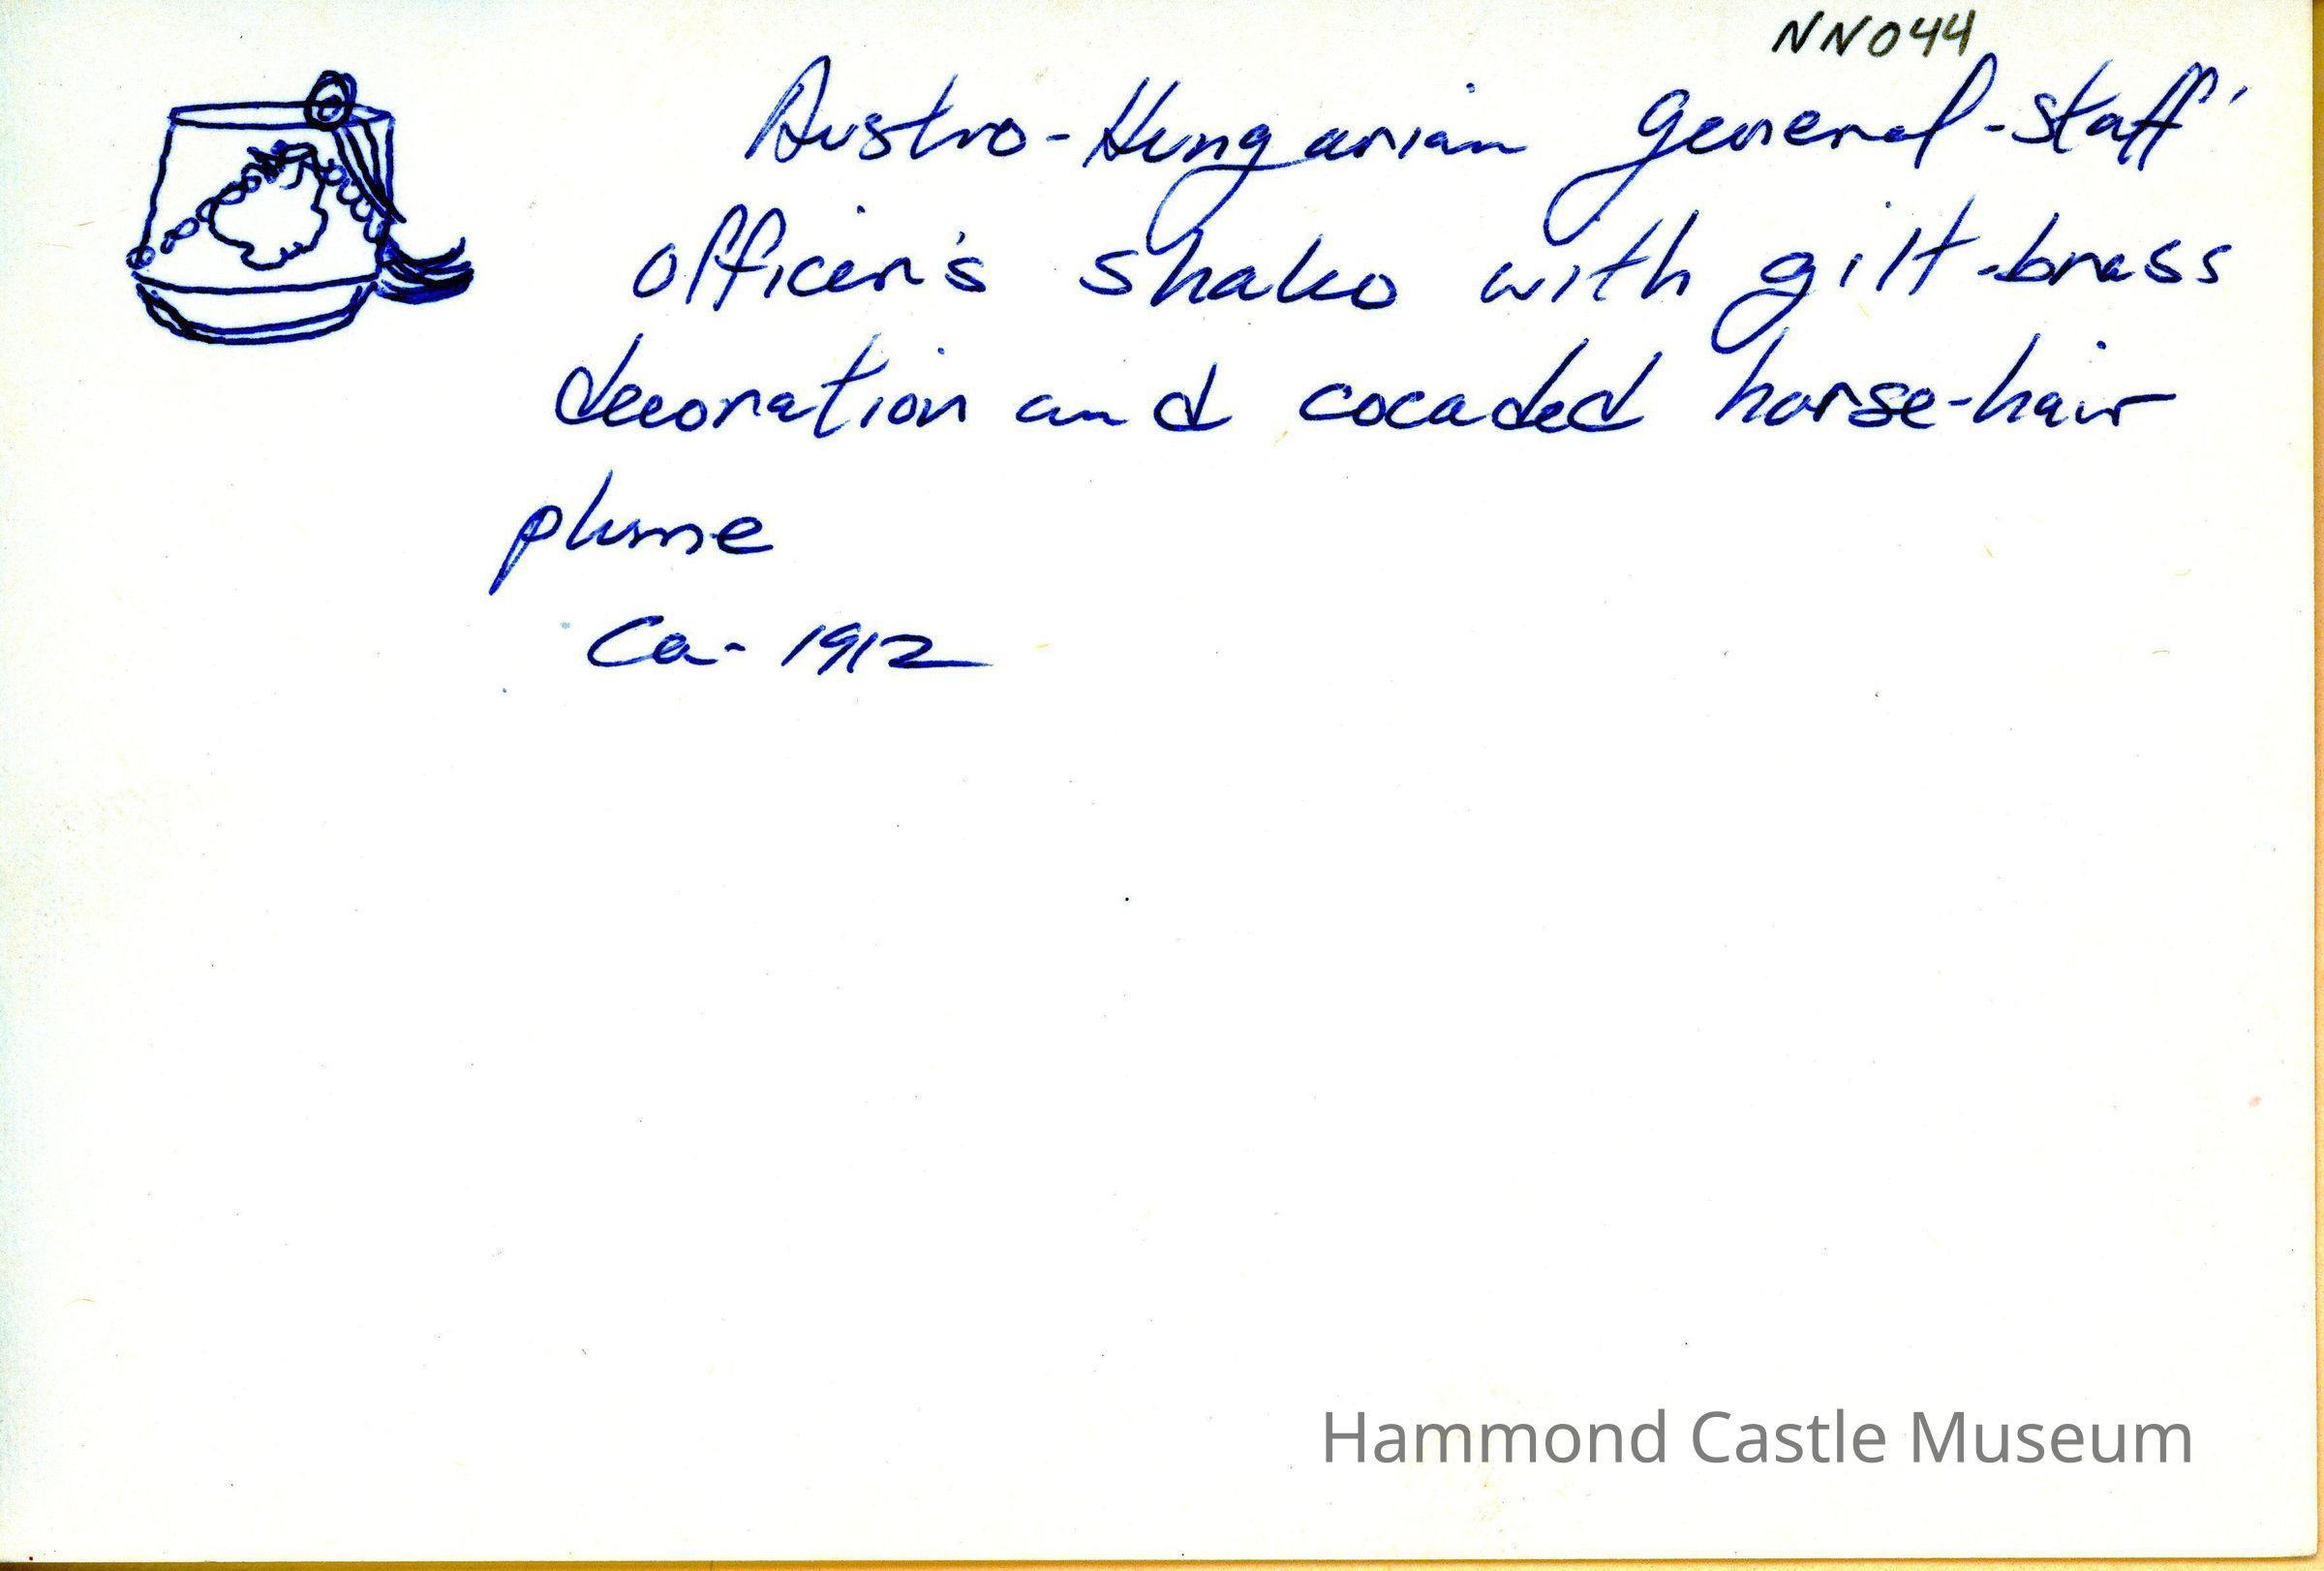 NN044
Austro-Hungarian general-staff
officer's shako with gilt-brass
decoration and cocaded horse-hair
plume
Ca- 1912
Hammond Castle Museum